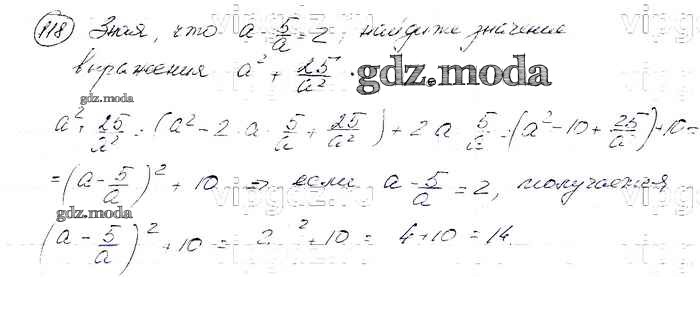 118 Зная, что a - 5/a = 2, найдите значение
выражения a² + 25/a².
gdz.moda
gdz.moda
a² + 25/a² = (a² - 2·a·5/a + 25/a²) + 2·a·5/a = (a² - 10 + 25/a²) + 10 =
= (a - 5/a)² + 10 ⇒ если a - 5/a = 2, получается
gdz.moda
(a - 5/a)² + 10 = 2² + 10 = 4 + 10 = 14.